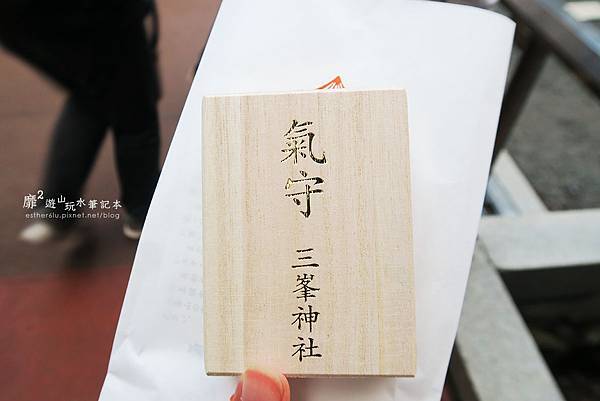 氣守
三峯神社
靡²遊山玩水筆記本
esther6lu.pixnet.net/blog